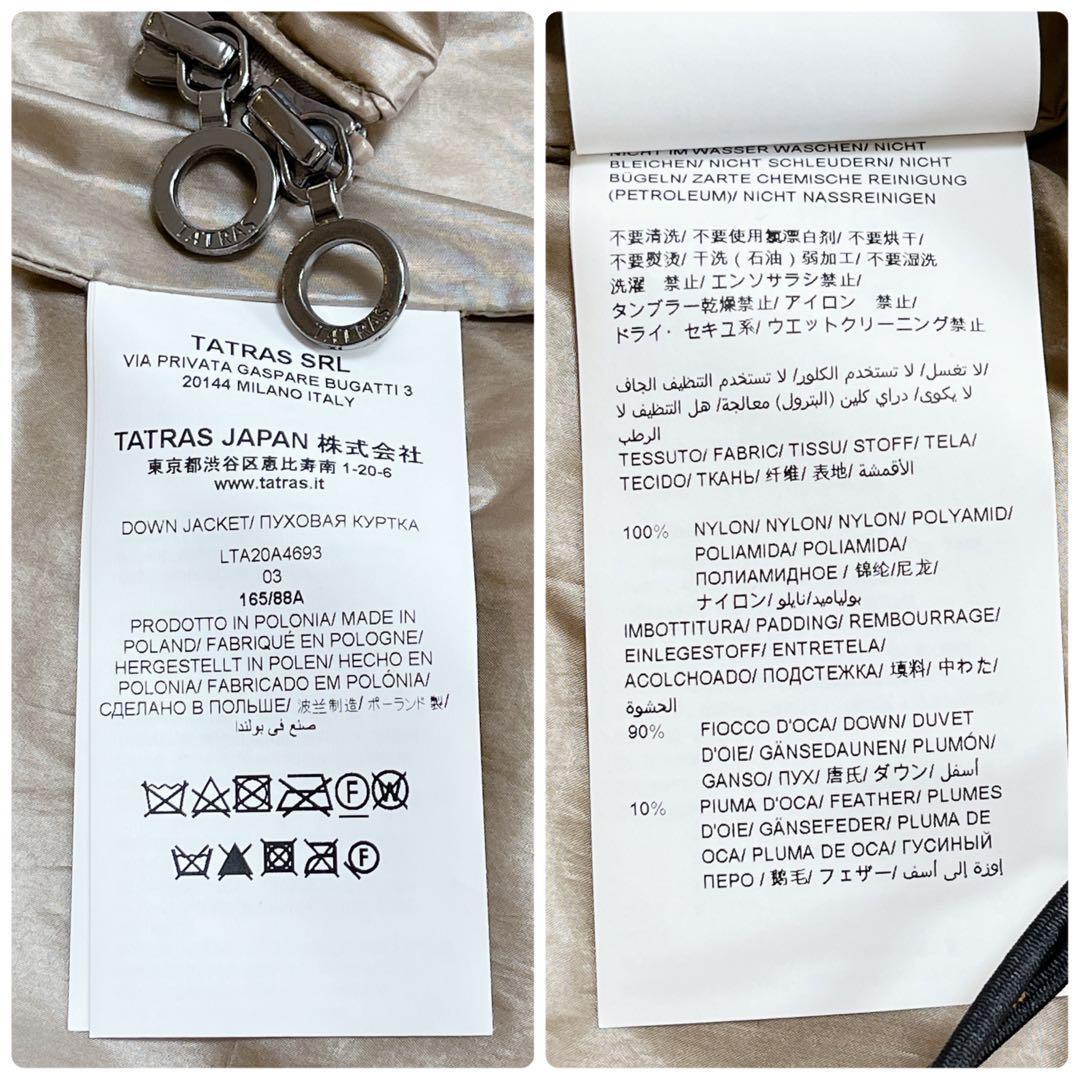 TATRAS
TATRAS
TATRAS SRL
VIA PRIVATA GASPARE BUGATTI 3
20144 MILANO ITALY
TATRAS JAPAN 株式会社
東京都渋谷区恵比寿南 1-20-6
www.tatras.it
DOWN JACKET/ ПУХОВАЯ КУРТКА
LTA20A4693
03
165/88A
PRODOTTO IN POLONIA/ MADE IN
POLAND/ FABRIQUÉ EN POLOGNE/
HERGESTELLT IN POLEN/ HECHO EN
POLONIA/ FABRICADO EM POLÓNIA/
СДЕЛАНО В ПОЛЬШЕ/ 波兰制造/ ポーランド製/
صنع في بولندا
F W
F
NICHT IM WASSER WASCHEN/ NICHT
BLEICHEN/ NICHT SCHLEUDERN/ NICHT
BÜGELN/ ZARTE CHEMISCHE REINIGUNG
(PETROLEUM)/ NICHT NASSREINIGEN
不要清洗/ 不要使用氯漂白剂/ 不要烘干/
不要熨烫/ 干洗（石油）弱加工/ 不要湿洗
洗濯　禁止/ エンソサラシ禁止/
タンブラー乾燥禁止/ アイロン　禁止/
ドライ・セキユ系/ ウエットクリーニング禁止
لا تغسل/ لا تستخدم الكلور/ لا تستخدم التنظيف الجاف/
لا يكوى/ دراي كلين (البترول) معالجة/ هل التنظيف لا
الرطب
TESSUTO/ FABRIC/ TISSU/ STOFF/ TELA/
TECIDO/ ТКАНЬ/ 纤维/ 表地/ الأقمشة
100% NYLON/ NYLON/ NYLON/ POLYAMID/
POLIAMIDA/ POLIAMIDA/
ПОЛИАМИДНОЕ / 锦纶/尼龙/
ナイロン/ بولياميد/نايلو
IMBOTTITURA/ PADDING/ REMBOURRAGE/
EINLEGESTOFF/ ENTRETELA/
ACOLCHOADO/ ПОДСТЕЖКА/ 填料/ 中わた/
الحشوة
90% FIOCCO D'OCA/ DOWN/ DUVET
D'OIE/ GÄNSEDAUNEN/ PLUMÓN/
GANSO/ ПУХ/ 唐氏/ ダウン/ أسفل/
10% PIUMA D'OCA/ FEATHER/ PLUMES
D'OIE/ GÄNSEFEDER/ PLUMA DE
OCA/ PLUMA DE OCA/ ГУСИНЫЙ
ПЕРО / 鹅毛/ フェザー/ اوزة إلى أسف/